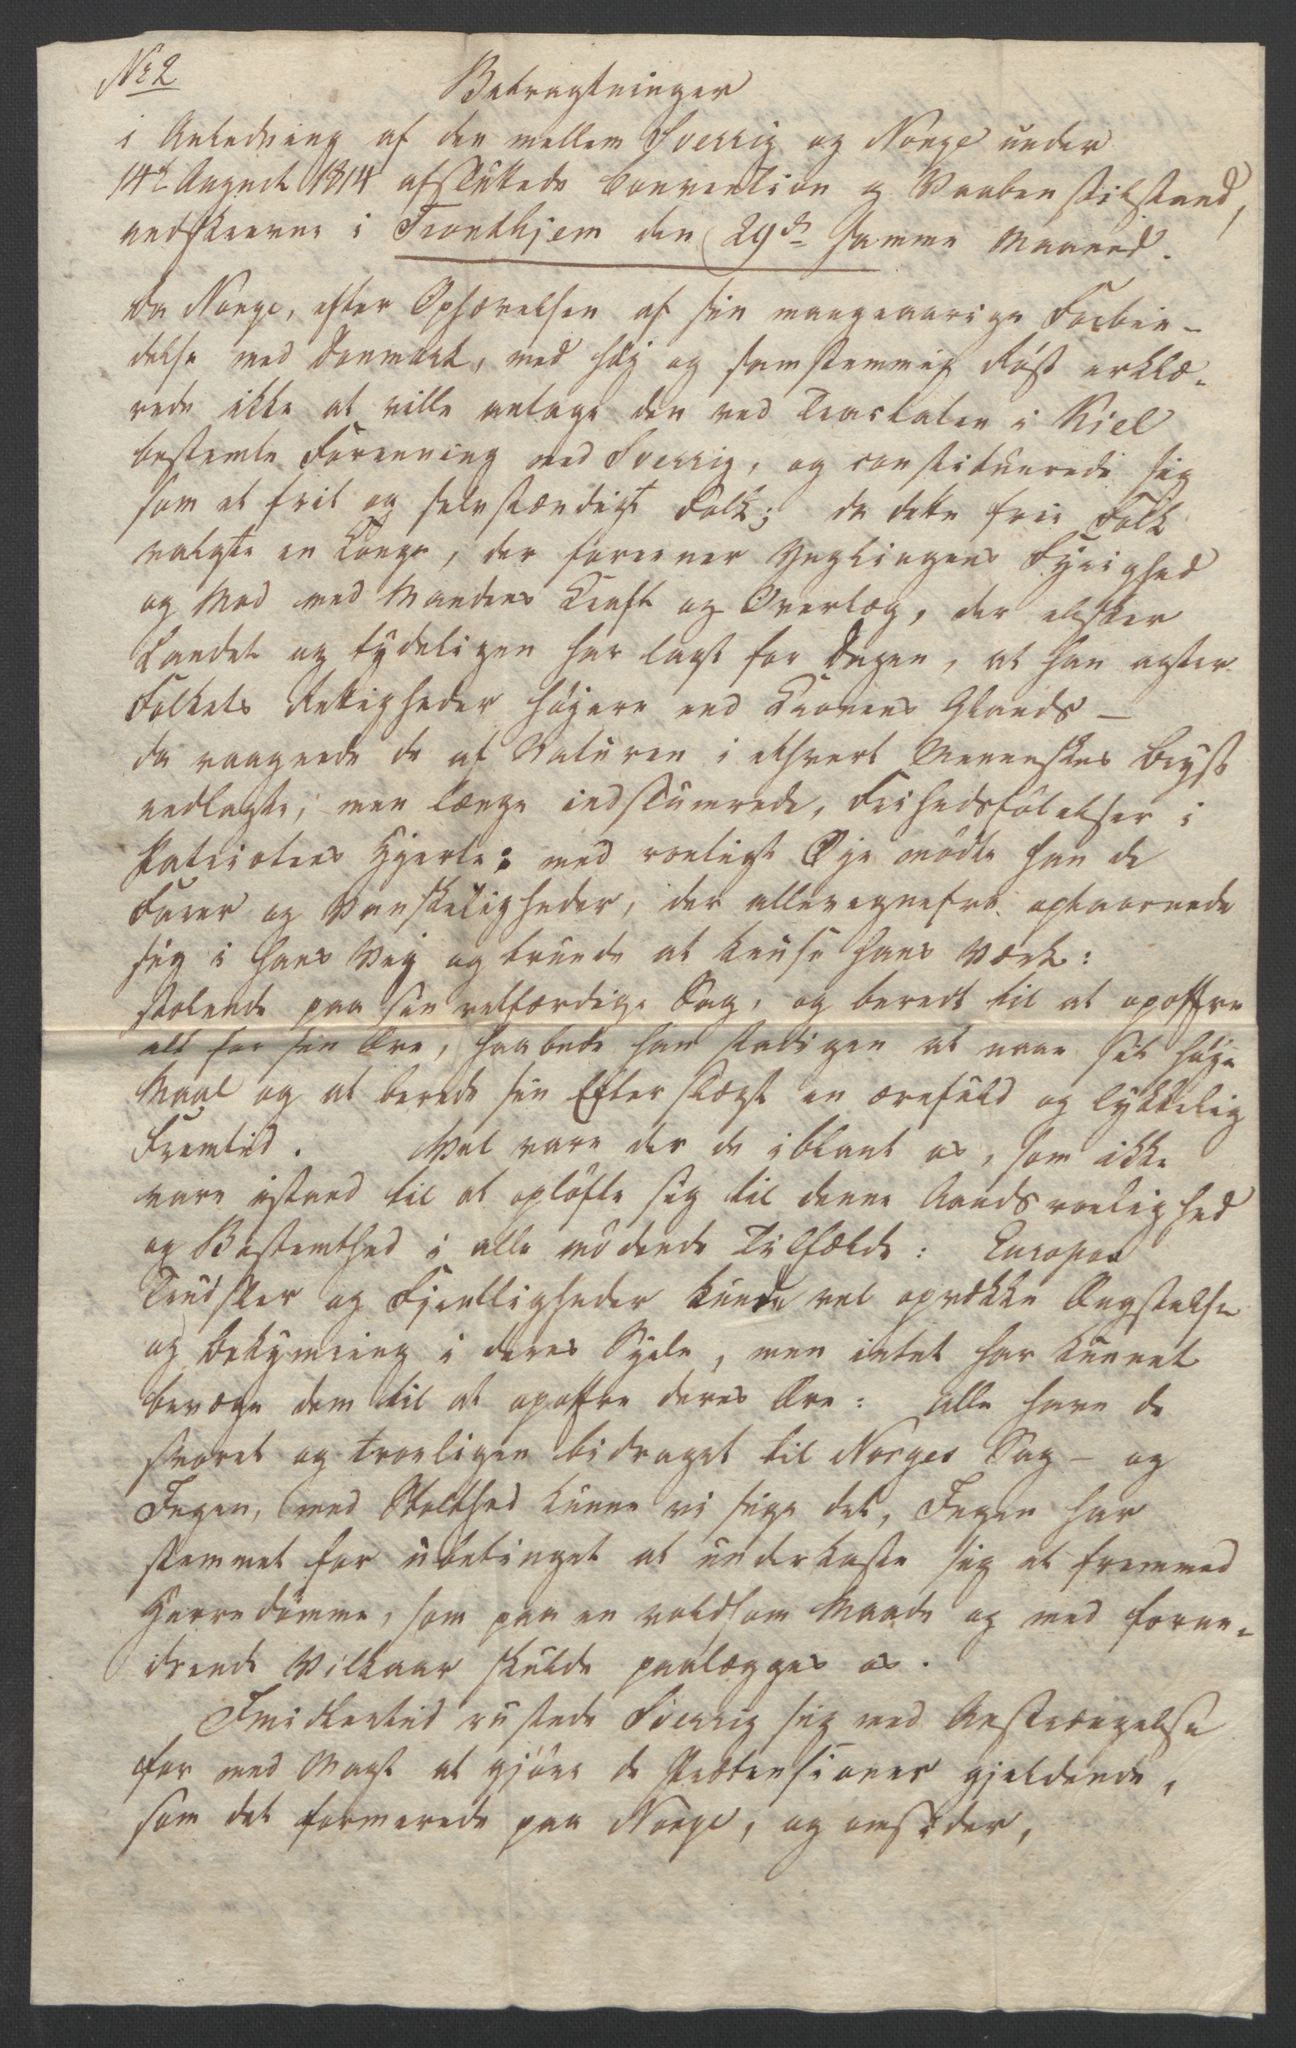 No 2
Betragtninger
i Anledning af den mellem Sverrig og Norge under
14de August 1814 afsluttede Convention og Vaabenstilstand,
nedskrevne i Trondhjem den 29de samme Maaned.
Da Norge, efter Ophævelsen af sin mangeaarige Forbin-
delse med Danmark, med høj og samstemmig Røst erklæ-
rede ikke at ville antage den ved Tractaten i Kiel
bestemte Forening med Sverrig, og constituerede sig
som et frit og selvstændigt Folk; da dette frie Folk
valgte en Konge, der forener Ynglingens Fyrighed
og Mod med Mandens Kraft og Overlæg, der elsker
Landet og tydeligen har lagt for Dagen, at han agter
Folkets Rettigheder højere end Kronens Glands –
da vaagnede de af Naturen i ethvert Menneskes Bryst
nedlagte, men længe indslumrede, Frihedsfølelser i
Patriotens Hjerte: med roeligt Øje mødte han de
Farer og Vanskeligheder, der allevegnefra optaarnede
sig i hans Vej og truede at knuse hans Værk:
stolende paa sin retfærdige Sag, og beredt til at opoffre
alt for sin Ære, haabede han stadigen at naae sit høje
Maal og at berede sin Efterslægt en ærefuld og lykkelig
Fremtid. Vel vare der de iblant os, som ikke
vare istand til at opløfte sig til denne Aands roelighed
og Bestemthed i alle mødende Tilfælde: Europas
Trudsler og Fjentligheder kunde vel opvække Ængstelse
og Bekymring i deres Sjele, men intet har kunnet
bevæge dem til at opoffre deres Ære: alle have de
svoret og troeligen bidraget til Norges Sag – og
Ingen, med Stolthed kunne vi sige det, Ingen har
stemmet for ubetinget at underkaste sig et fremmed
Herredømme, som paa en voldsom Maade og med forne-
drende Vilkaar skulde paalægges os.
Imidlertid rustede Sverrig sig med Anstrængelse
for med Magt at gjøre de Prætensioner gjeldende,
som det formerede paa Norge, og omsider,